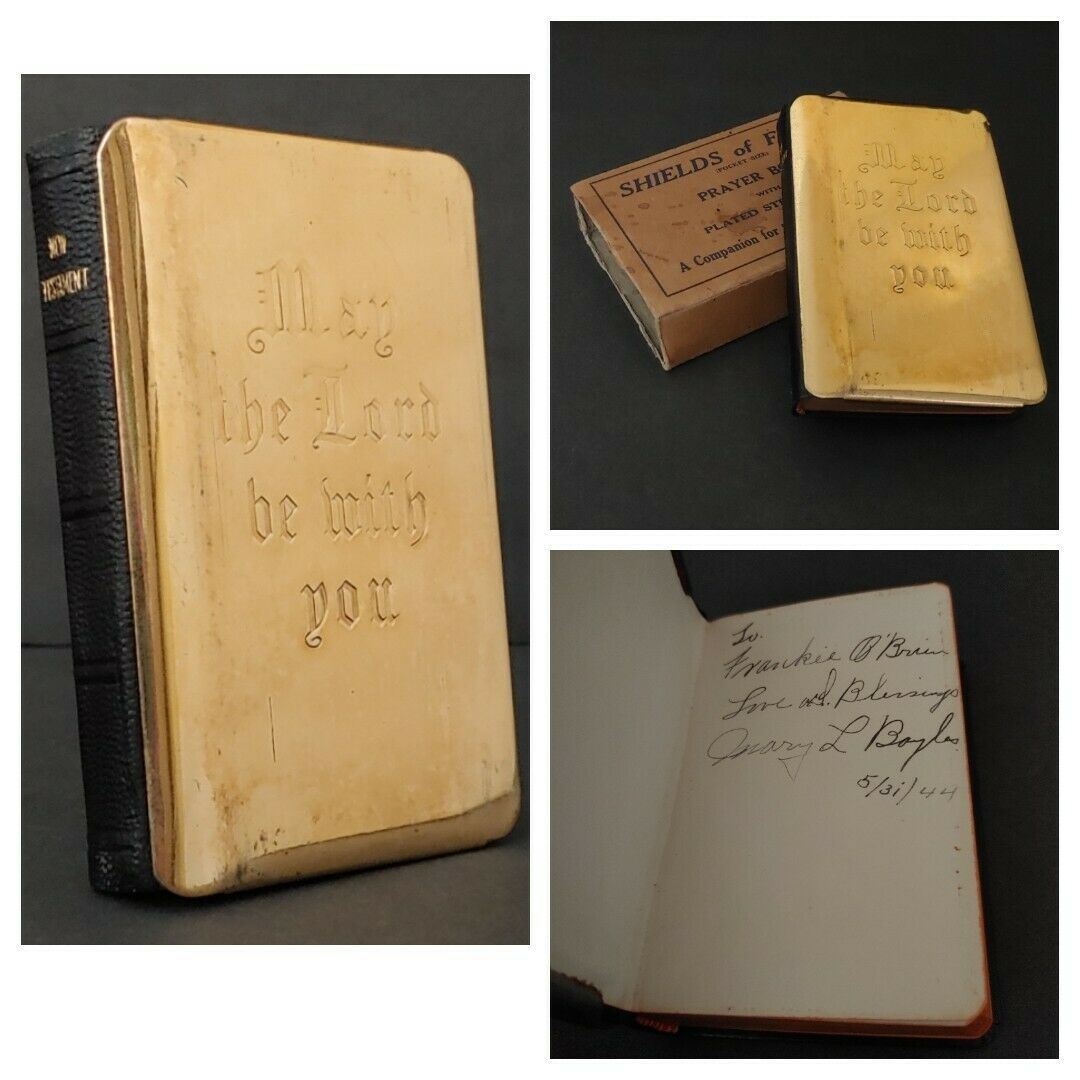 NEW
TESTAMENT
May
the Lord
be with
you
SHIELDS of
(POCKET-SIZE)
PRAYER
WITH
PLATED
A Companion for
May
the Lord
be with
you
To.
Frankie O'Brien
Love and Blessings
Mary L Boyles
5/31/44